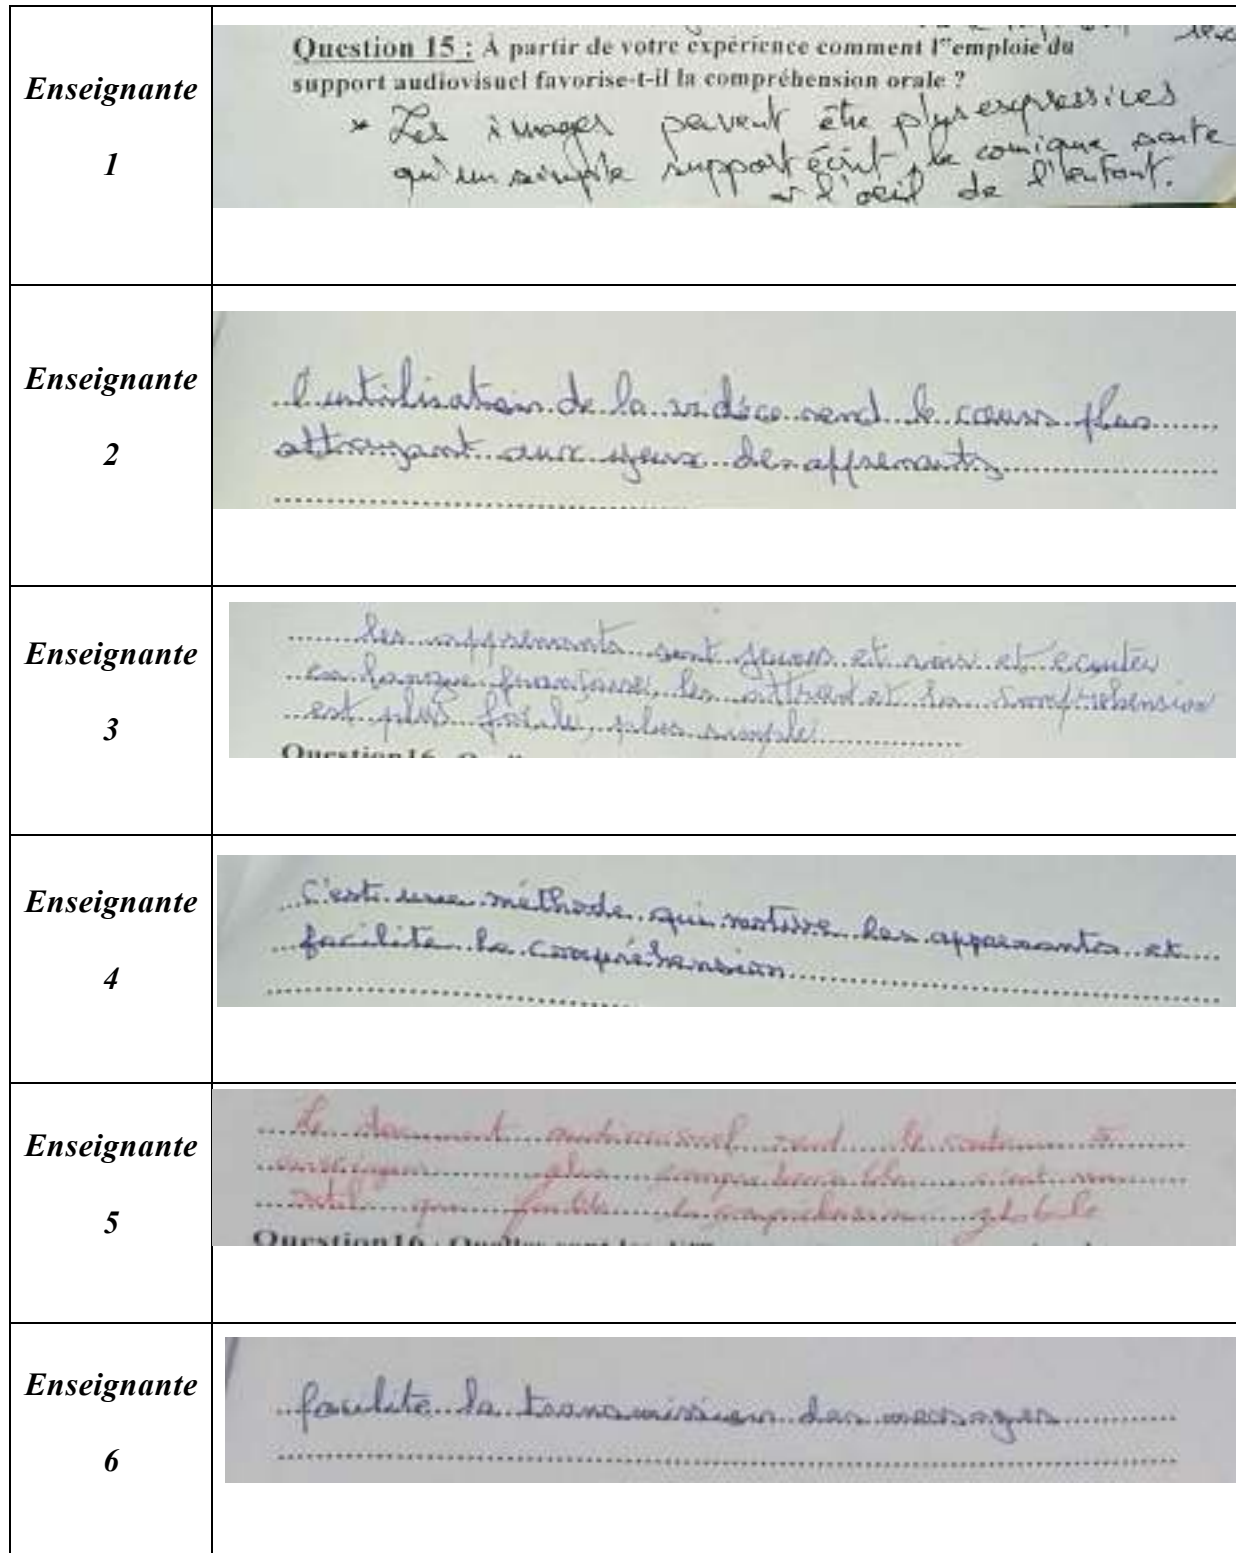 Enseignante
1
Question 15 : À partir de votre expérience comment l"emploie du
support audiovisuel favorise-t-il la compréhension orale ?
* Les images peuvent être plus expressives
qu'un simple support écrit, le comique saute
à l'oeil de l'enfant.
Enseignante
2
l'utilisation de la vidéo rend le cours plus
attrayant aux yeux des apprenants
Enseignante
3
les apprenants sont jeunes et voir et écouter
en langue française, les attired et la compréhension
est plus facile, plus simple
Question16
Enseignante
4
C'est une méthode qui motive les apprenants et
facilite la compréhension
Enseignante
5
Le document audiovisuel rend le contenu à
enseigner plus compréhensible
outil que facilite la compréhension globale
Question16 : Quelles sont les
Enseignante
6
facilite la transmission des messages